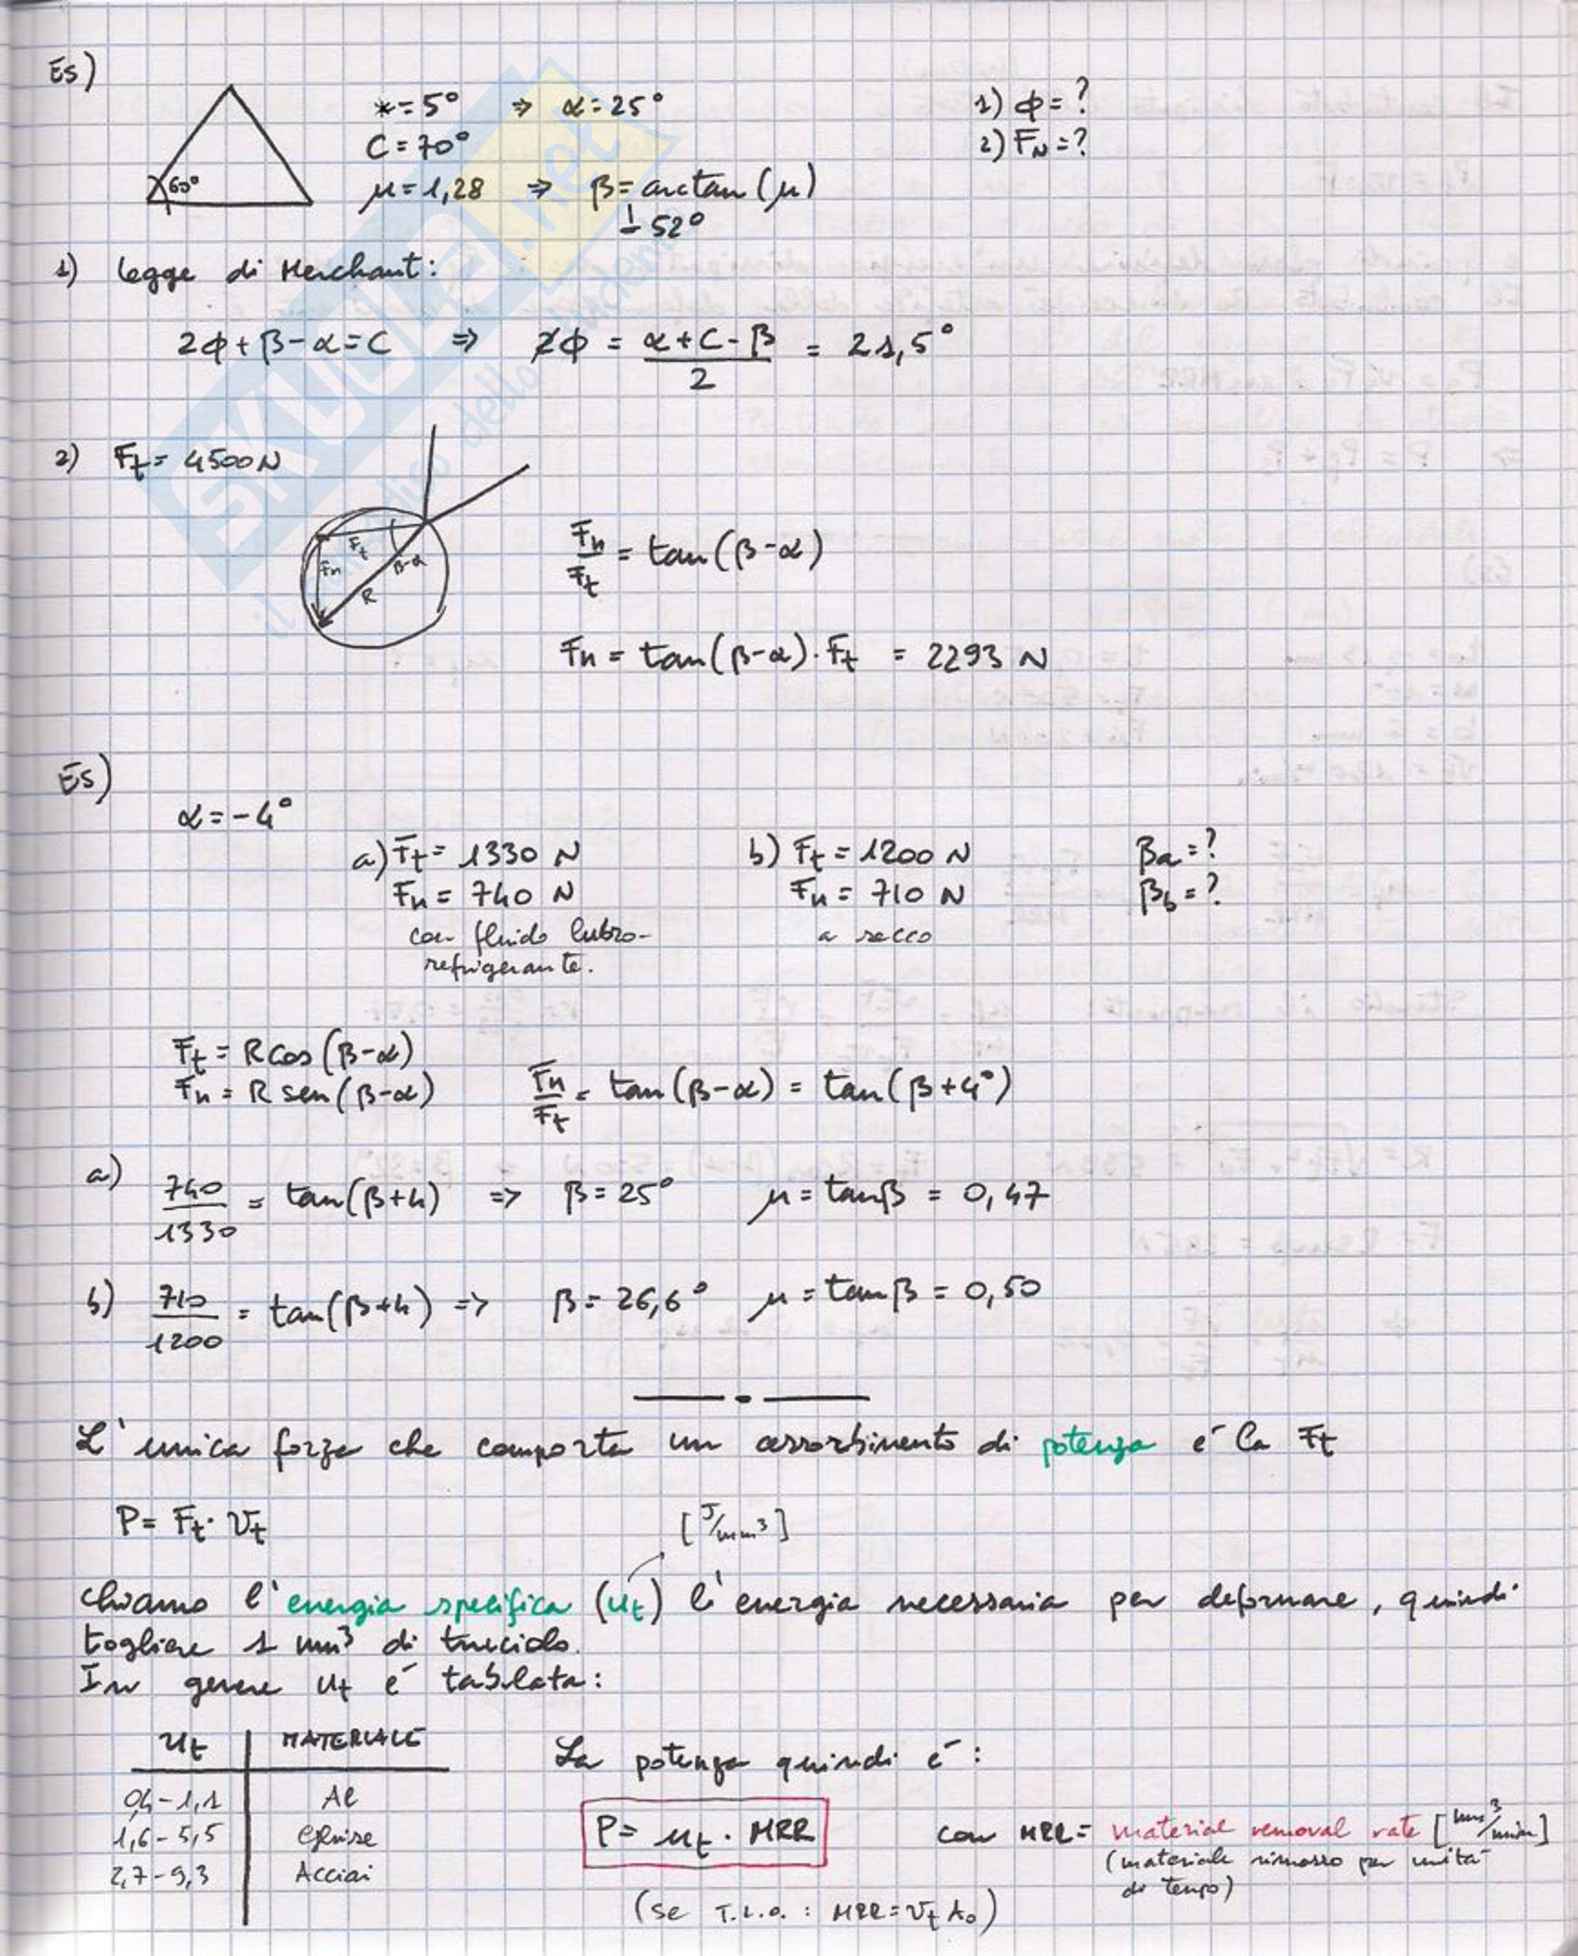 Es)
60°
*=5° ⇒ α=25°
C=70°
μ=1,28 ⇒ β=arctan(μ)
=52°
1) ϕ=?
2) FN=?
1) legge di Merchant:
2ϕ+β-α=C ⇒ 2ϕ = α+C-β / 2 = 21,5°
2) Ft= 4500N
Ft
Fn
R
β-α
Fn/Ft = tan(β-α)
Fn = tan(β-α)·Ft = 2293 N
Es)
α=-4°
a) Ft= 1330 N
Fn= 740 N
con fluido lubro-
refrigerante.
b) Ft = 1200 N
Fn= 710 N
a secco
βa=?
βb=?
Ft = R cos(β-α)
Fn = R sen(β-α)
Fn/Ft = tan(β-α) = tan(β+4°)
a) 740/1330 = tan(β+4) => β=25° μ=tanβ = 0,47
b) 710/1200 = tan(β+4) => β= 26,6° μ=tanβ = 0,50
L'unica forza che comporta un assorbimento di potenza é la Ft
P= Ft· Vt
[J/mm³]
chiamo l'energia specifica (ut) l'energia necessaria per deformare, quindi
togliere 1 mm³ di truciolo.
In genere ut é tabulata:
ut MATERIALE
0,4-1,1 Al
1,6-5,5 Ghise
2,7-9,3 Acciai
La potenza quindi é:
P= ut · MRR
con MRR= material removal rate [mm³/min]
(materiale rimosso per unita
di tempo)
(se T.L.O. : MRR=Vt A0)
SKUOLA.net